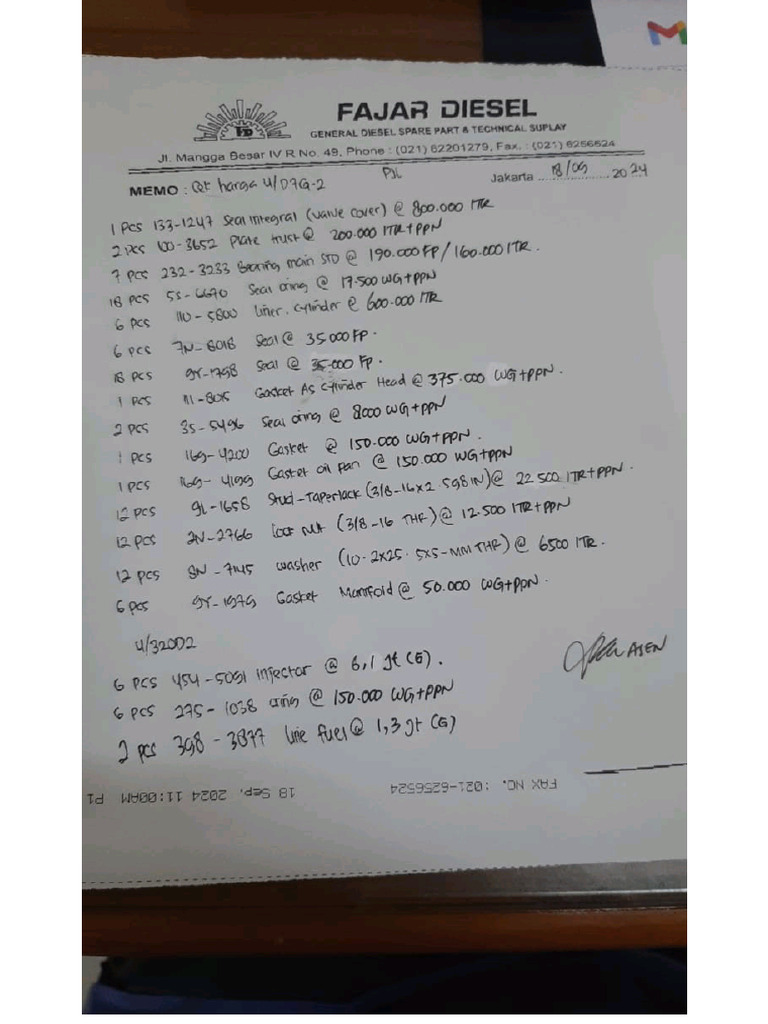 FAJAR DIESEL
GENERAL DIESEL SPARE PART & TECHNICAL SUPLAY
Jl. Mangga Besar IV R No. 49, Phone : (021) 62201279, Fax. : (021) 6256524
MEMO : Cek harga U/D7G-2
Jakarta 18/09 2024
1 Pcs 133-1247 Seal Integral (valve cover) @ 800.000 ITR
2 Pcs 100-3652 Plate trust @ 200.000 ITR+PPN
7 Pcs 232-3233 Bearing main STD @ 190.000 FP/160.000 ITR.
18 Pcs 5S-6670 Seal oring @ 17.500 WG+PPN
6 Pcs 110-5800 liner. cylinder @ 600.000 ITR
6 Pcs 7N-8018 Seal @ 35000 FP.
18 Pcs 9Y-1798 Seal @ 35.000 FP.
1 Pcs Gasket As Cylinder Head @ 375.000 WG+PPN.
2 Pcs 3S-5496 Seal oring @ 8000 WG+PPN
1 Pcs 169-4200 Gasket @ 150.000 WG+PPN.
1 Pcs 169-4199 Gasket oil pan @ 150.000 WG+PPN
12 Pcs 9L-1658 Stud-Taperlock (3/8-16x2.598IN) @ 22.500 ITR+PPN.
12 Pcs 2N-2766 (3/8-16 THR) @ 12.500 ITR+PPN
12 Pcs 8N-7145 washer (10.2x25.5x5-MM THR) @ 6500 ITR.
6 Pcs 9Y-1979 Gasket Manifold @ 50.000 WG+PPN.
U/320D2
6 Pcs 454-5091 injector @ 6,1 jt (G).
6 Pcs 275-1038 oring @ 150.000 WG+PPN
2 pcs 398-3877 line fuel @ 1,3 jt (G)
ASEN
FAX NO. :021-6256524
18 Sep. 2024 11:00AM P1